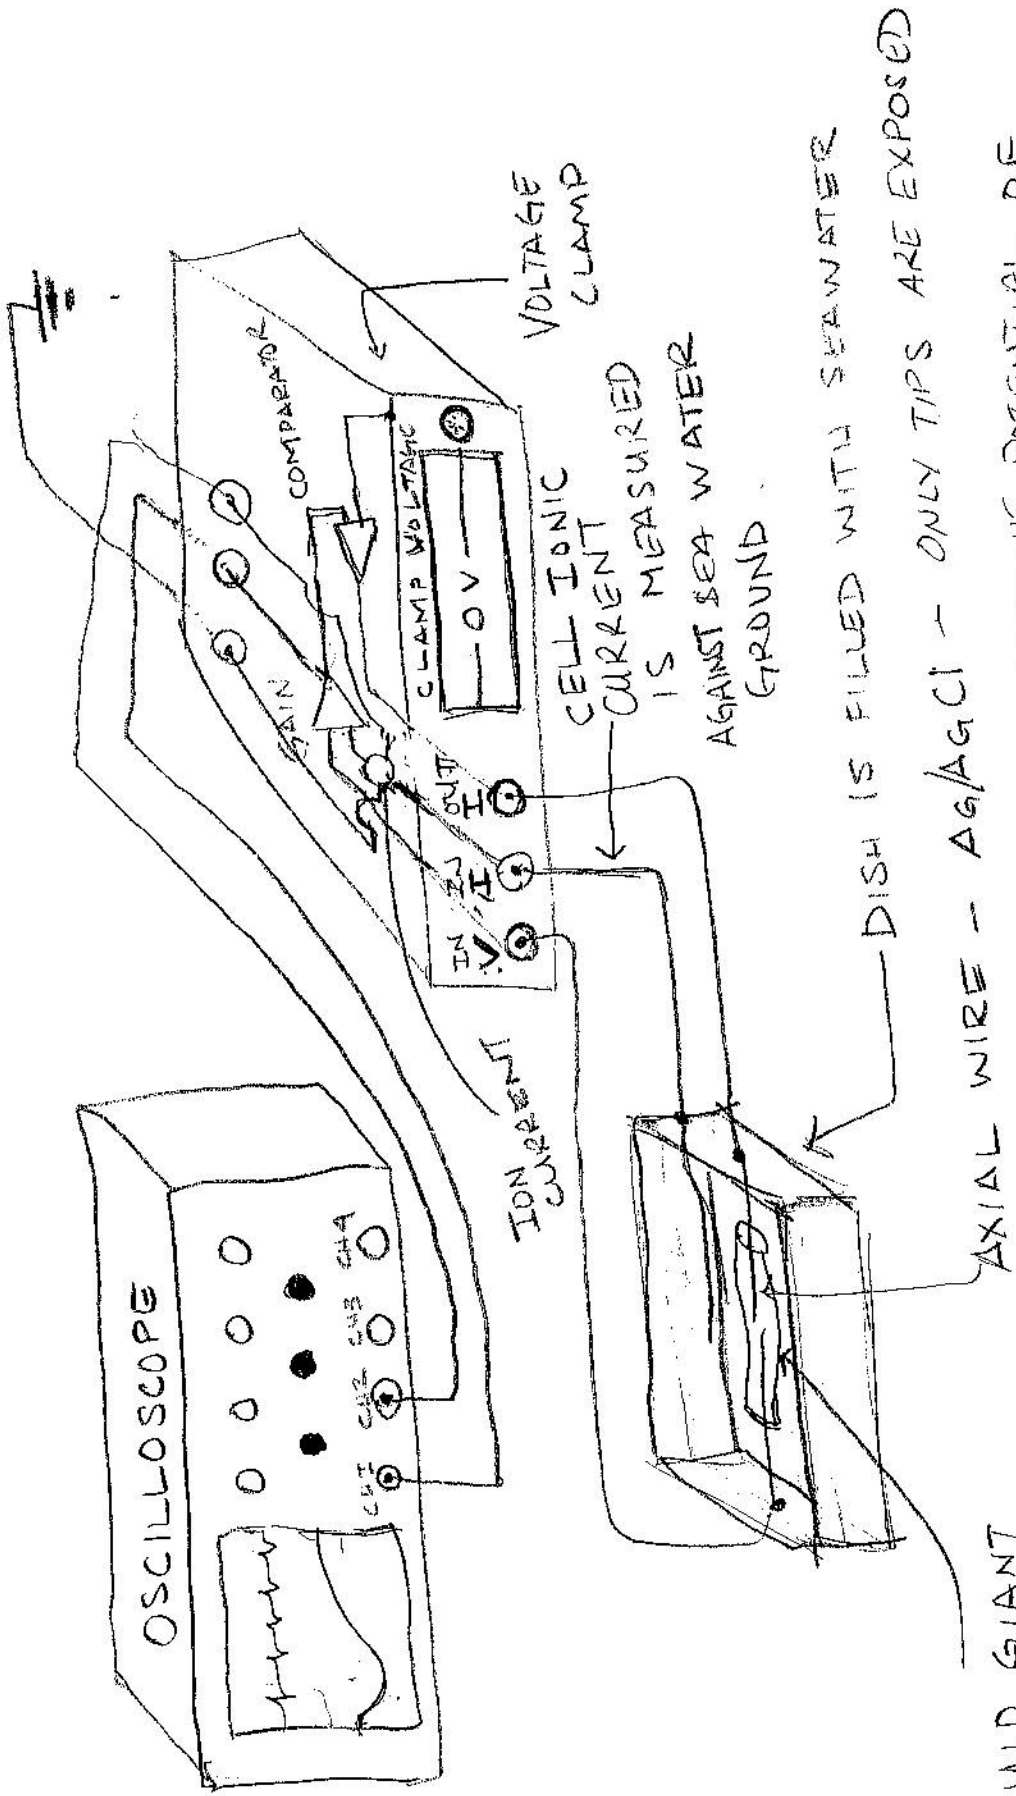 OSCILLOSCOPE
CH1 CH2 CH3 CH4
COMPARATOR
GAIN
CLAMP VOLTAGE
— 0V —
IN
V
IN
I
OUT
I
ION
CURRENT
VOLTAGE
CLAMP
CELL IONIC
CURRENT
IS MEASURED
AGAINST SEA WATER
GROUND.
DISH IS FILLED WITH SEAWATER
AXIAL WIRE - AG/AGCl - ONLY TIPS ARE EXPOSED
GIANT